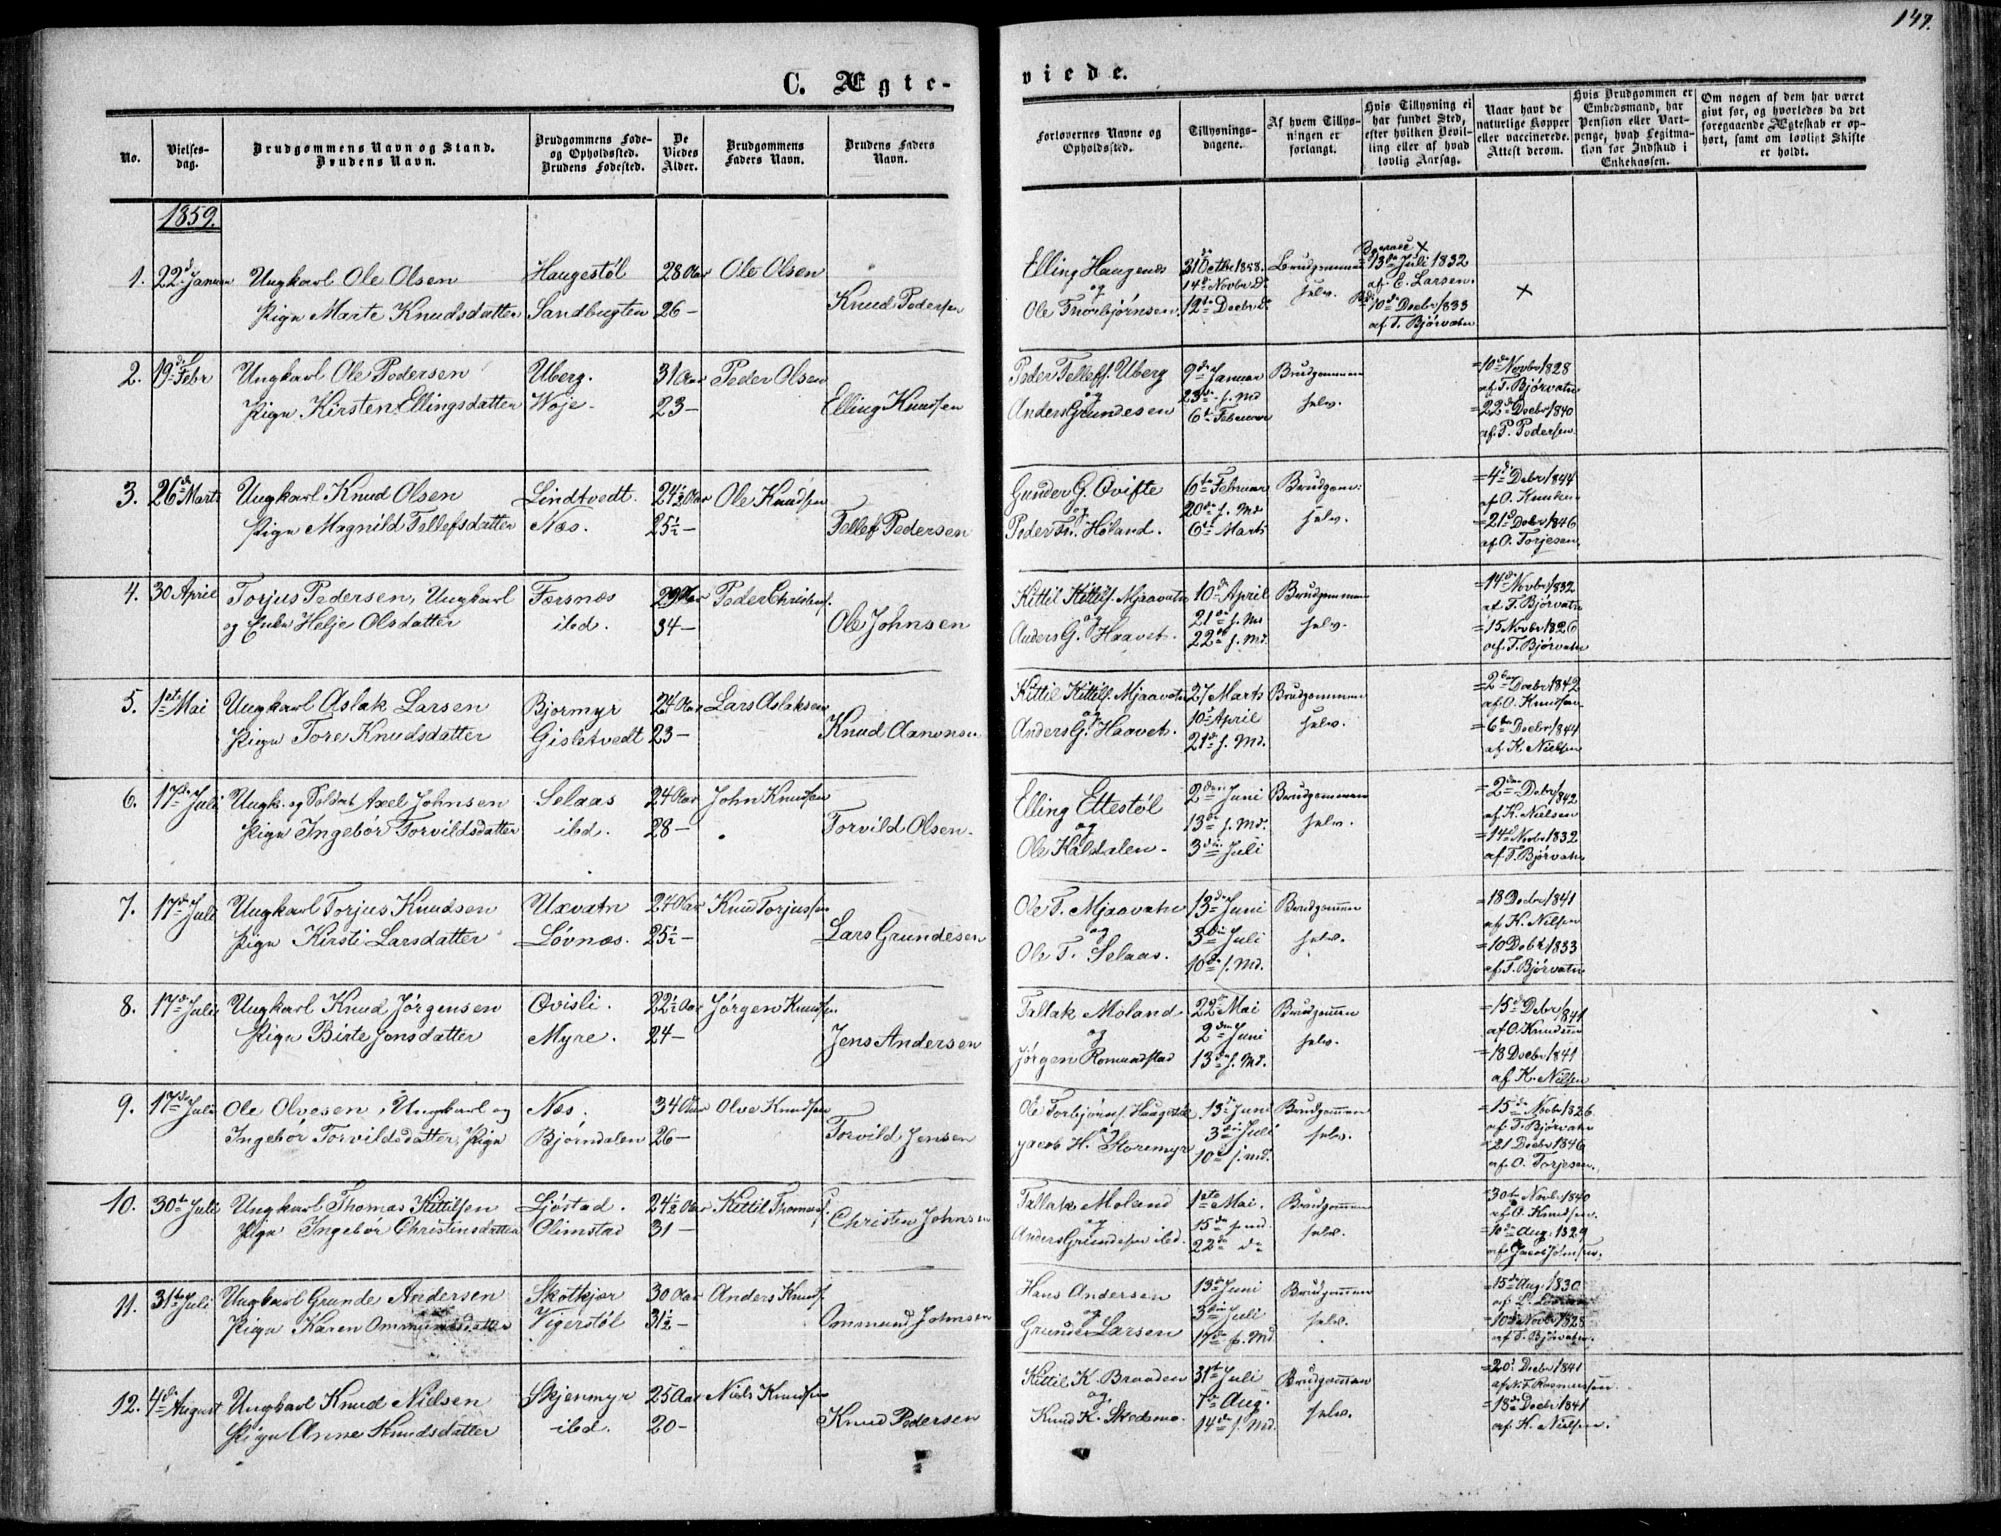 147.
C. Ægte-
viede.
No.
Vielses-
dag.
Brudgommens Navn og Stand.
Brudens Navn.
Brudgommens Føde-
og Opholdssted.
Brudens Fødested.
De
Viedes
Alder.
Brudgommens
Faders Navn.
Brudens Faders
Navn.
Forlovernes Navne og
Opholdssted.
Tillysnings-
dagene.
Af hvem Tillys-
ningen er
forlangt.
Hvis Tillysning ei
har fundet Sted,
efter hvilken Bevil-
ling eller af hvad
lovlig Aarsag.
Naar havt de
naturlige Kopper
eller vaccinerede.
Attest derom.
Hvis Brudgommen er
Embedsmand, har
Pension eller Vart-
penge, hvad Legitima-
tion for Indskud i
Enkekassen.
Om nogen af dem har været
givt før, og hvorledes da det
foregaaende Ægteskab er op-
hørt, samt om lovligt Skifte
er holdt.
1859.
1. 22d Januar Ungkarl Ole Olsen Haugestøl 28 Aar Ole Olsen
Pige Marte Knudsdatter Sandbugten 26 - Knud Pedersen
Elling Haugenes 31 Octbr 1858. Brudgommen 13de Juli 1832
og 14d Novbr Do selv. af E. Larsen. ×
Ole Thorbjørnsen. 12te Decbr Do 10de Decbr 1833
af T. Bjørvatn
2. 19d Febr Ungkarl Ole Pedersen Uberg. 31 Aar Peder Olsen
Pige Kirsten Ellingsdatter Woje. 23 - Elling Knudsen
Peder Tellefs. Uberg 9de Januar Brudgommen =10de Novbr 1828
og 23de s. Md selv. af T. Bjørvatn
Anders Grundesen 6te Februar =22de Decbr 1840
af P. Pedersen.
3. 26d Marts Ungkarl Knud Olsen Lindtvedt. 24½ Aar Ole Knudsen
Pige Magnild Tellefsdatter Næs. 25½ - Tellef Pedersen
Gunder G. Qvifte 6te Februar Brudgom: =4d Debr 1844
og 20de s. Md selv. af O. Knudsen
Peder Th. Høland. 6te Marts =21d Debr 1846
af O. Torjesen.
4. 30 April Torjus Pedersen, Ungkarl Førsnæs 29 Aar Peder Christens.
og Enke Helje Olsdatter ibd. 34 - Ole Johnsen
Kittil Kittils. Mjaavatn 10de April Brudgommen =14de Novbr 1832
og 21de s. Md selv. af T. Bjørvatn
Anders G. Haavet. 22de s. Md. =15 Novbr 1826
af T. Bjørvatn
5. 1ste Mai Ungkarl Aslak Larsen Bjormyr 24 Aar Lars Aslaksen
Pige Tore Knudsdatter Gisletvedt 23 - Knud Aanonsen
Kittil Kittils. Mjaavatn 27 Marts Brudgommen =2den Decbr 1842
og 10d April selv. af O. Knudsen
Anders G. Haavet. 21de s. Md. =6te Decbr 1844
af K. Nielsen
6. 17de Juli Ungk. og Soldat Axel Johnsen Selaas 24 Aar John Knudsen
Pige Ingebør Torvildsdatter ibd. 28 - Torvild Olsen.
Elling Ettestøl 2den Juni Brudgommen =2den Debr 1842
og 13de s. Md. selv. af K. Nielsen
Ole Haldalen. 3die Juli =14d Novbr 1832
af T. Bjørvatn
7. 17de Juli Ungkarl Torjus Knudsen Uxvatn 24 Aar Knud Torjussen
Pige Kirsti Larsdatter Løvnæs. 25½ - Lars Grundesen
Ole T. Mjaavatn 13de Juni Brudgommen =18 Decbr 1841
og 3die Juli selv. af K. Nielsen
Ole T. Selaas. 10de s. Md. =10 Debr 1833
af T. Bjørvatn
8. 17d Juli Ungkarl Knud Jørgensen Qvisli. 22½ Aar Jørgen Knudsen
Pige Birte Jensdatter Myre. 24 - Jens Andersen
Tallak Moland 22d Mai Brudgommen =15d Debr 1841
og 2den Juni selv. af O. Knudsen
Jørgen Romundstad 13de s. Md. =18 Decbr 1841
af K. Nielsen
9. 17de Juli Ole Olvesen, Ungkarl og Næs. 34 Aar Olve Knudsen
Ingebør Torvildsdatter, Pige Bjørndalen 26 - Torvild Jensen
Ole Torbjørns. Haugestøl 13de Juni Brudgommen =15de Novbr 1826.
og 3die Juli selv. af T. Bjørvatn
Jacob H. Storemyr 10de s. Md. =21 Decbr 1846
af O. Torjesen.
10. 30te Juli Ungkarl Thomas Kittilsen Ljøstad. 24½ Aar Kittil Thomas.
Pige Ingebør Christinsdatter Olimstad 31 - Christen Johnsen
Tallak Moland 1ste Mai. Brudgommen =30te Novbr 1840
og 15de s. md selv. af O. Knudsen.
Anders Grundesen ibd. 22de do =10de Aug. 1829
af Jacob Johnsen.
11. 31te Juli Ungkarl Grunde Andersen Skotkjær 30 Aar Anders Knuds.
Pige Karen Ommundsdatter Vigerstøl 31½ - Ommund Johnsen
Hans Andersen 13de Juni Brudgommen =15de Aug. 1830
og 3die Juli selv.
Grunder Larsen 17de s. Md. =10de Novbr 1828
af T. Bjørvatn.
12. 4de August Ungkarl Knud Nielsen Skjenmyr 25 Aar Niels Knudsen
Pige Anne Knudsdatter ibd. 20 - Knud Pedersen
Kittil K. Braaden 31te Juli Brudgommen =20d Decbr 1841
og 7de Aug. selv. af N. T. Rasmussen
Knud K. Skedsmo. 14de s. Md. =18de Decbr 1841
af K. Nielsen.